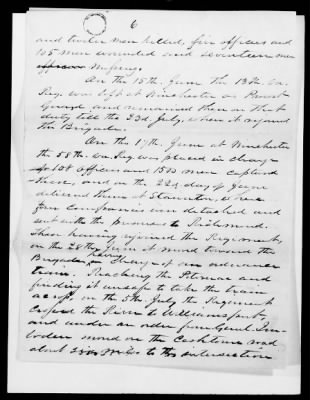 6
and twelve men killed, five officers and
105 men wounded and seventeen men
missing.
On the 15th June the 13th Va.
Reg. was left at Winchester as Provost
Guard and remained there on that
duty till the 23d July, when it rejoined
the Brigade.
On the 17th June at Winchester
the 58th Va. Reg. was placed in charge
of 108 officers and 1500 men captured
there, and on the 22d day of June
delivered them at Staunton, where
four companies were detached and
sent with the prisoners to Richmond.
Then having rejoined the Regiment,
on the 28th June it moved toward the
Brigade, having charge of an ordnance
train. Reaching the Potomac and
finding it unsafe to take the train
across, on the 5th July the Regiment
crossed the River to Williamsport,
and under an order from Genl. Im-
boden moved on the Cashtown road
about miles to the intersection